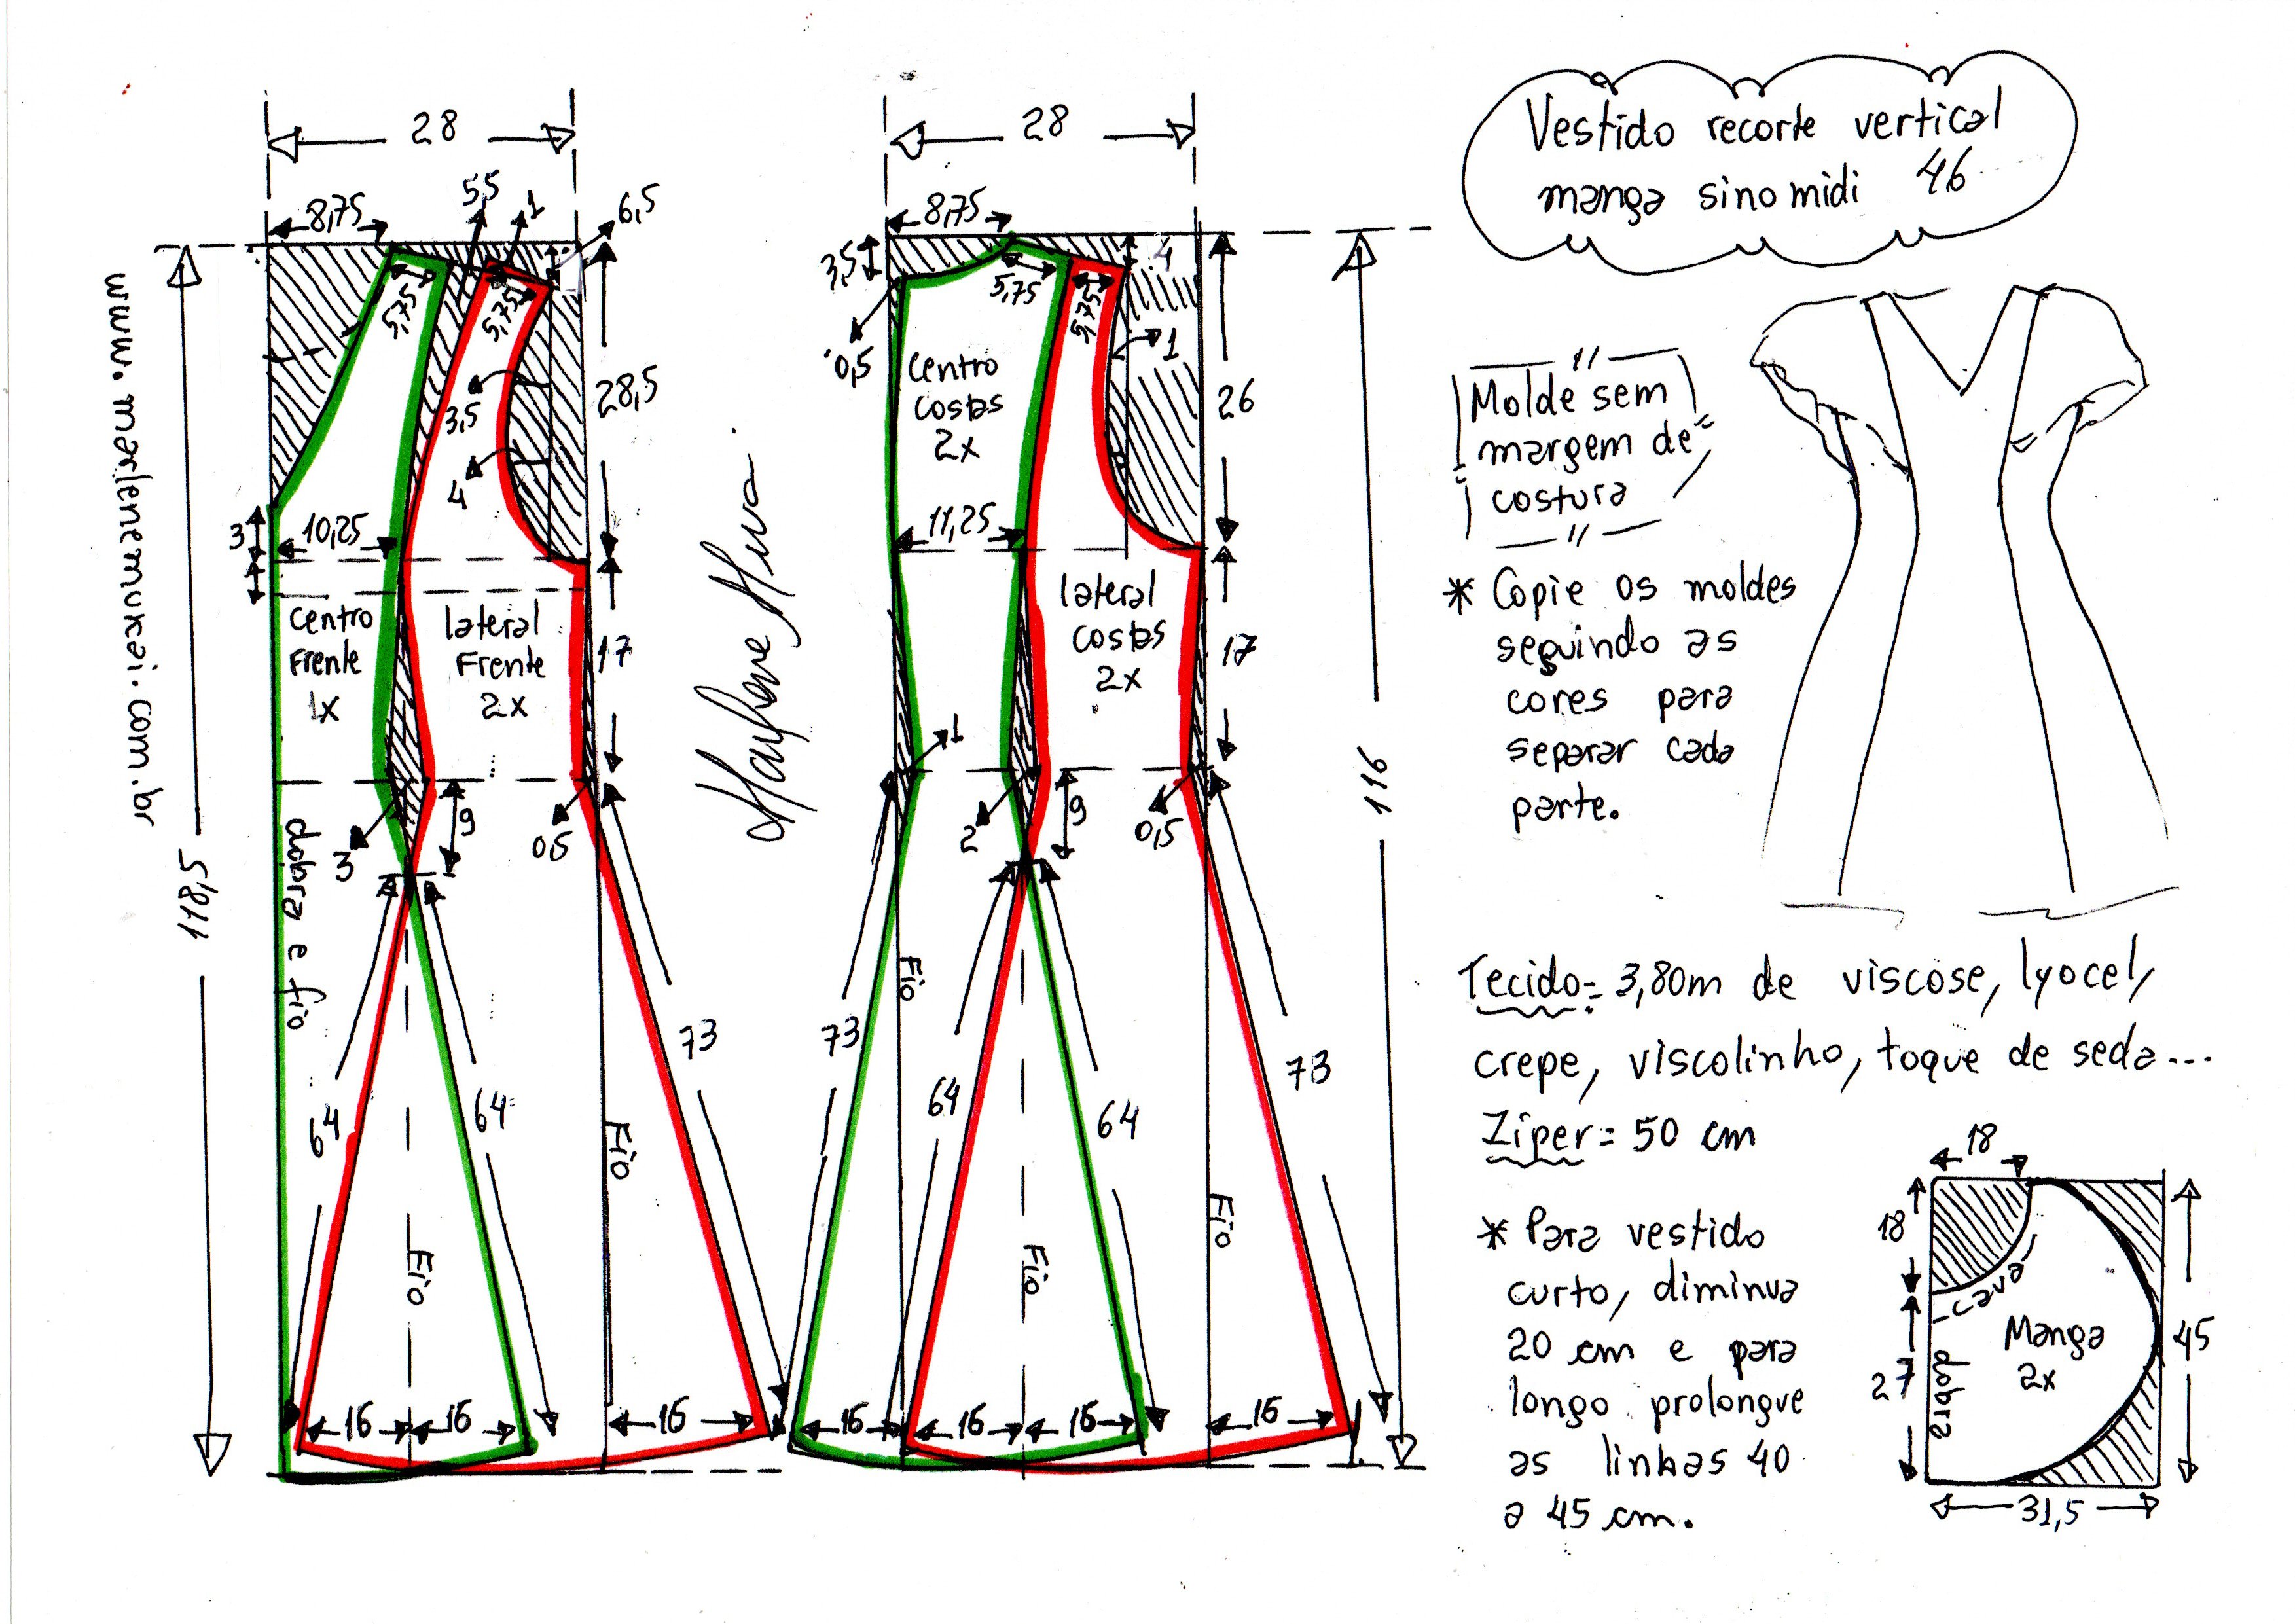 Vestido recorte vertical
manga sino midi 46
28
8,75
5,5
1
6,5
5,75
5,75
3,5
4
28,5
3
10,25
centro
Frente
1x
lateral
Frente
2x
17
9
3
0,5
dobra e fio
118,5
64
64
73
Fio
Fio
16
16
16
www.marlenemukai.com.br
28
8,75
3,5
4
0,5
5,75
5,75
1
centro
costas
2x
26
11,25
lateral
costas
2x
17
1
2
9
0,5
116
Fio
73
64
64
73
Fio
Fio
16
16
16
16
Molde sem
margem de
costura
* Copie os moldes
seguindo as
cores para
separar cada
parte.
Tecido= 3,80m de viscose, lyocel,
crepe, viscolinho, toque de seda...
Ziper= 50 cm
* Para vestido
curto, diminua
20 cm e para
longo prolongue
as linhas 40
a 45 cm.
18
18
cava
Manga
2x
27
dobra
45
31,5